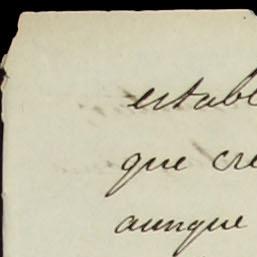 establ
que cre
aunque